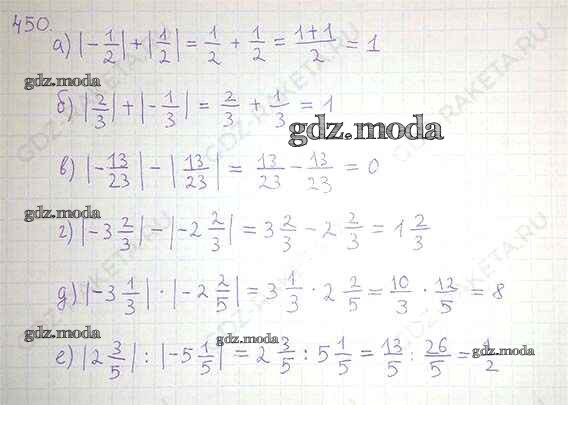 450.
а) |-1/2| + |1/2| = 1/2 + 1/2 = (1+1)/2 = 1
gdz.moda
б) |2/3| + |-1/3| = 2/3 + 1/3 = 1
gdz.moda
в) |-13/23| - |13/23| = 13/23 - 13/23 = 0
gdz.moda
г) |-3 2/3| - |-2 2/3| = 3 2/3 - 2 2/3 = 1 2/3
д) |-3 1/3| · |-2 2/5| = 3 1/3 · 2 2/5 = 10/3 · 12/5 = 8
gdz.moda
gdz.moda
gdz.moda
е) |2 3/5| : |-5 1/5| = 2 3/5 : 5 1/5 = 13/5 : 26/5 = 1/2
GDZ-RAKETA.RU